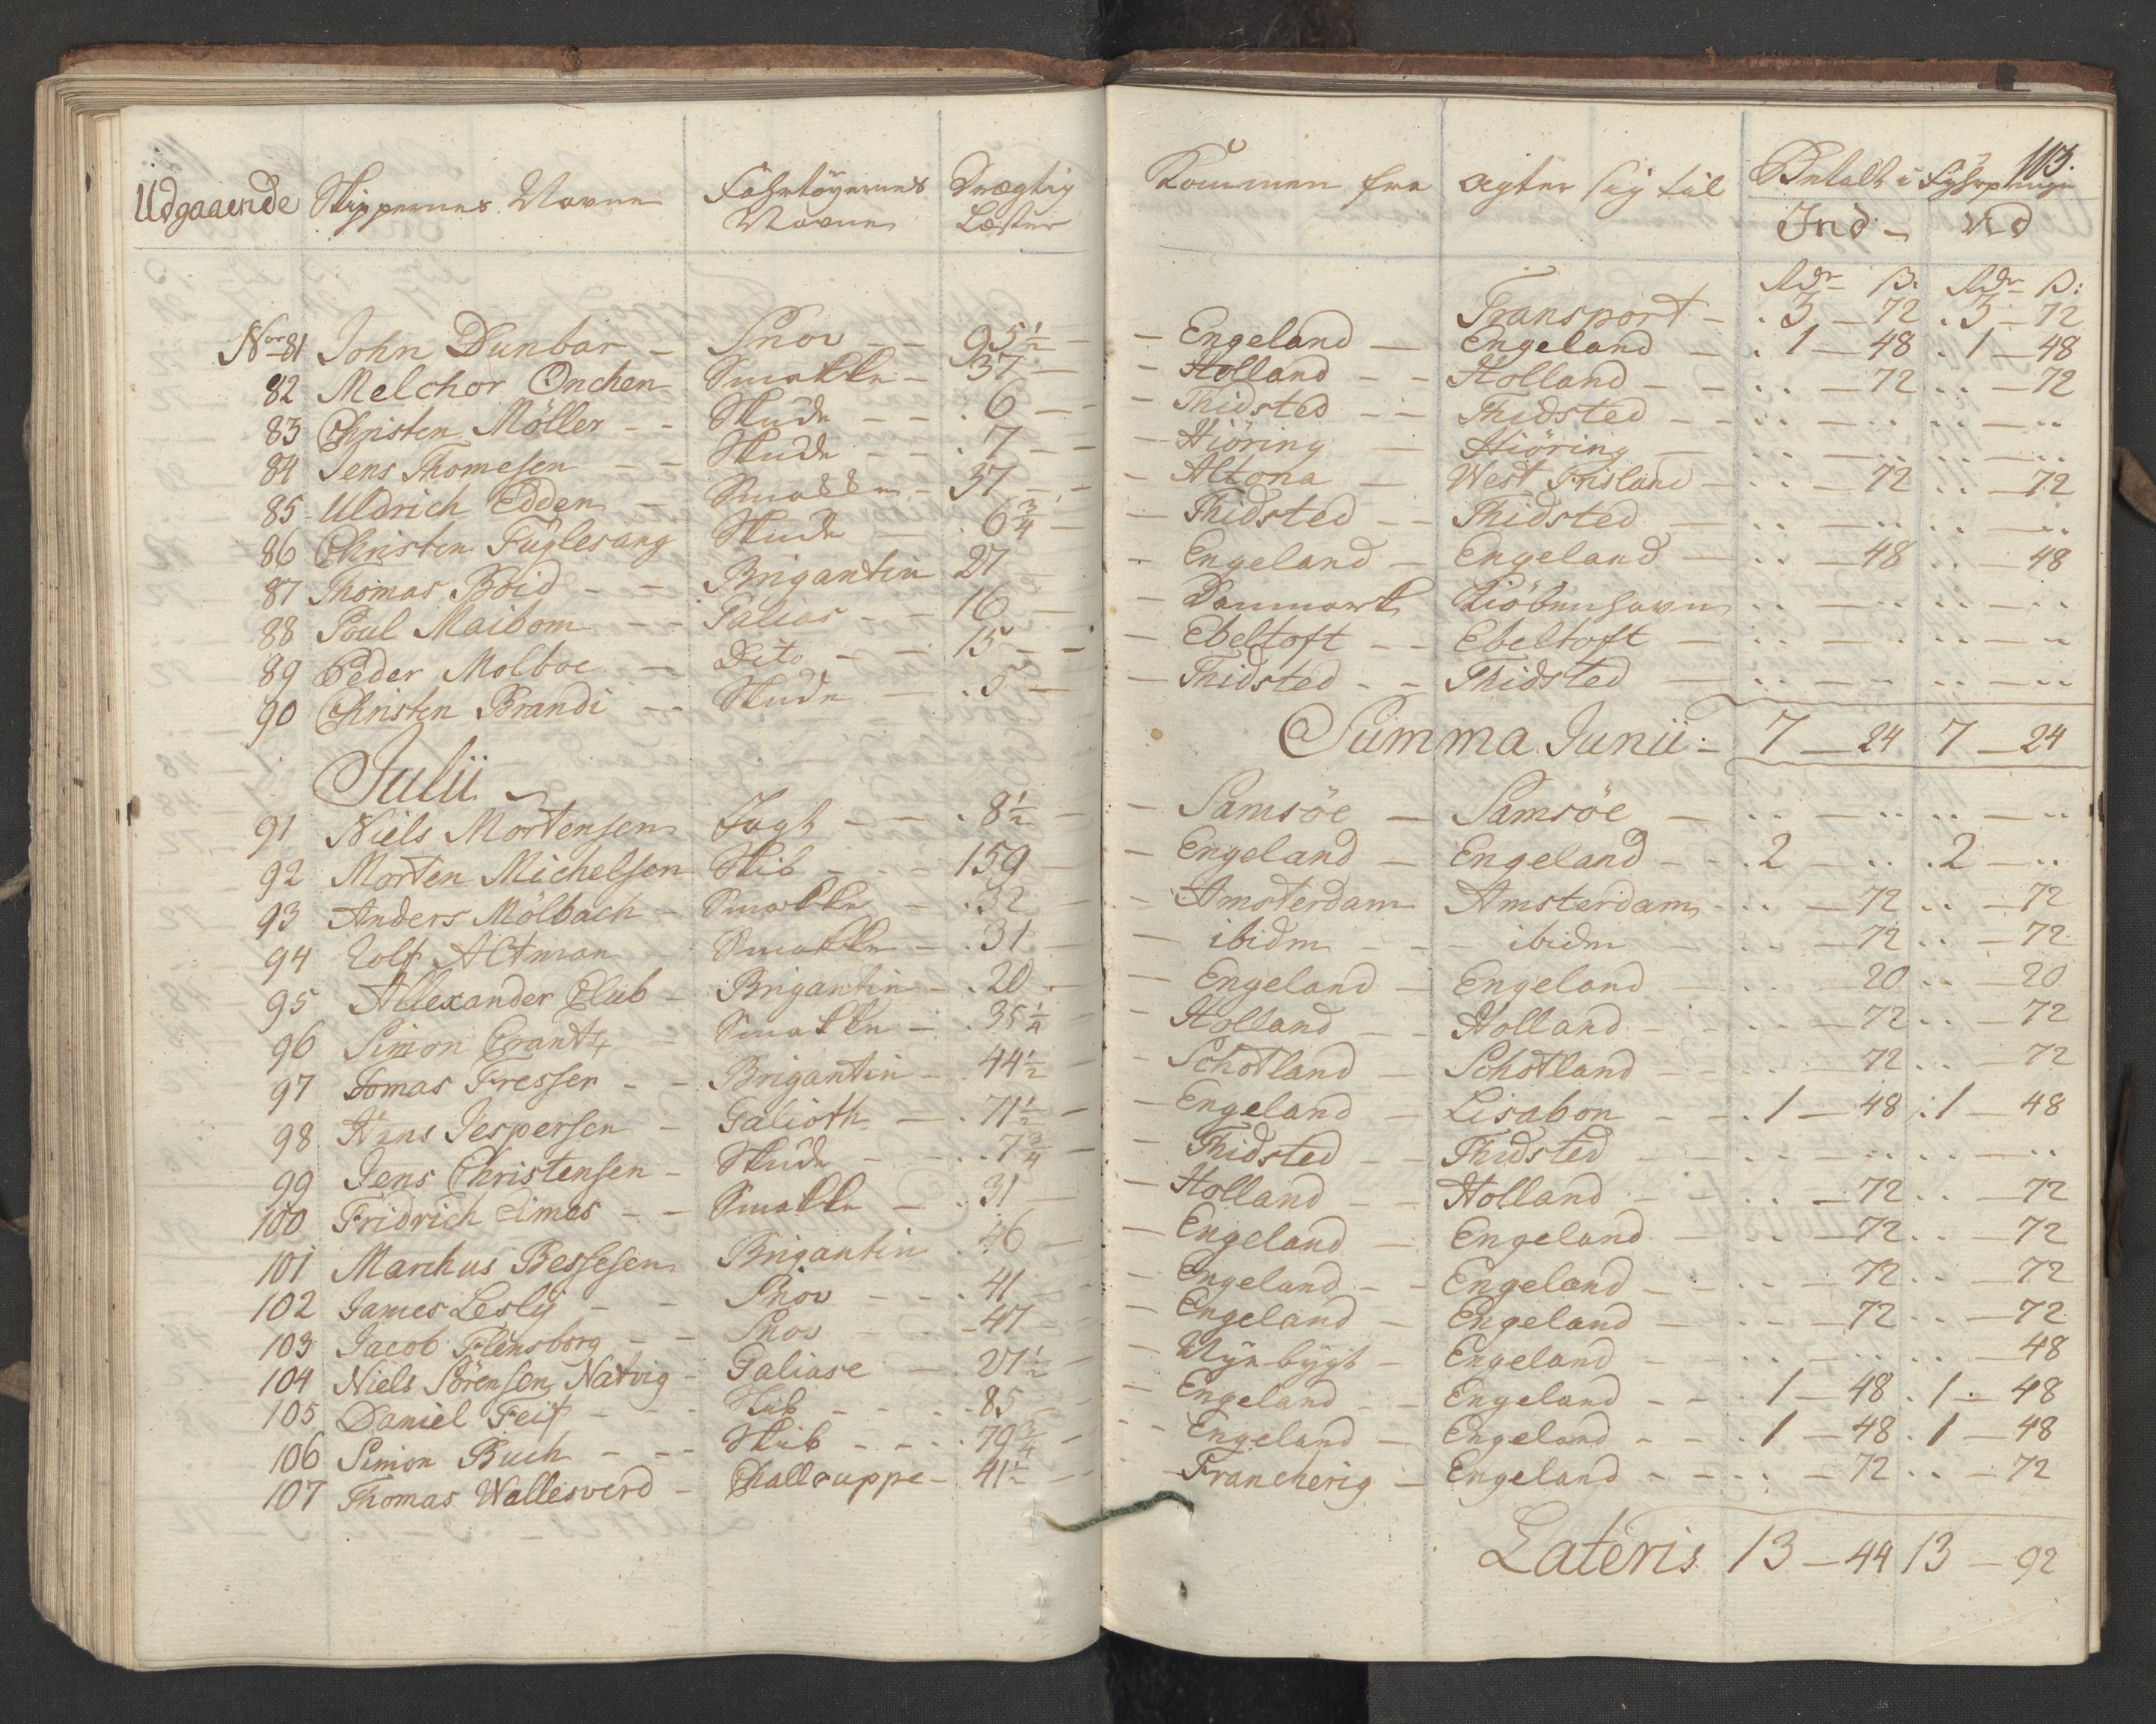 113.
Udgaaende Skippernes Navne Fahrtöyernes Navne Drægtig Læster Kommen fra agter sig til Betalt i Fyhrpenge
Ind - Ud
Rdr ß: Rdr ß:
Transport - . 3 - 72 . 3 - 72
Nor 81 John Dunbar - Snov - - 95 1/2 - Engeland - Engeland - . 1 - 48 . 1 - 48
82 Melchor Onchen Smakke - 37 - Holland - - Holland - - .. - 72 .. - 72
83 Christen Möller - - Skude - - . 6 - - Thidsted - - Thidsted - - .. - .. .. - ..
84 Jens Thomesen - - Skude - - . 7 - - Hiöring - Hiöring - .. - .. .. - ..
85 Uldrich Edden - Smakke - 37 - - Altona - West Frisland - .. - 72 .. - 72
86 Christen Fuglesang Skude - . 6 3/4 - Thidsted - - Thidsted - .. - .. .. - ..
87 Thomas Boid - - Brigantin 27 - Engeland - Engeland - .. - 48 .. - 48
88 Poul Maibom - - Galias - - 16 - Danmark Kiöbenhavn .. - .. .. - ..
89 Peder Molboe - Dito - - 15 - - Ebeltoft - - Ebeltoft - .. - .. .. - ..
90 Christen Brandi - - Skude - . 5 - Thidsted - - Thidsted - .. - .. .. - ..
Summa Junii - 7 - 24 7 - 24
Julii
91 Niels Mortensen Jagt - - . 8 1/2 - Samsöe - Samsöe - .. - .. .. - ..
92 Morten Michelsen Skib - - - 159 - Engeland - Engeland - - . 2 - .. . 2 - ..
93 Anders Mölbach - Smakke - . 32 - Amsterdam Amsterdam - .. - 72 .. - 72
94 Rolf Altman - Smakke - . 31 - ibidm - - ibidm .. - 72 .. - 72
95 Allexander Club - Brigantin - . 20 - Engeland - Engeland - .. - 20 .. - 20
96 Simon Crantz - Smakke - . 35 1/4 - Holland - - Holland - - .. - 72 .. - 72
97 Tomas Fresser - - Brigantin - 44 1/2 - Schotland - Schotland - .. - 72 .. - 72
98 Hans Jespersen - Galioth - . 71 1/2 - Engeland - Lisabon - - . 1 - 48 . 1 - 48
99 Jens Christensen - Skude - - . 7 3/4 - Thidsted - - Thidsted - .. - .. .. - ..
100 Fridrich Eimes - - Smakke - . 31 - Holland - - Holland - - .. - 72 .. - 72
101 Marchus Bessesen Brigantin . 46 - Engeland - Engeland - .. - 72 .. - 72
102 James Lesly - - Snov - - . 41 - Engeland - - Engeland - - .. - 72 .. - 72
103 Jacob Flensborg - - Snov - - 47 - Engeland - Engeland - .. - 72 .. - 72
104 Niels Sörensen Natvig - Galiase - 27 1/2 - Nÿebÿgt - Engeland - .. - .. .. - 48
105 Daniel Feif - - - Skib - - - 85 - Engeland - - Engeland - - . 1 - 48 . 1 - 48
106 Simon Buch - - - Skib - - . 79 3/4 - Engeland - Engeland - - . 1 - 48 . 1 - 48
107 Thomas Wallisverd - Challouppe - 41 1/2 - - Francherig - Engeland - - .. - 72 .. - 72
Lateris 13 - 44 13 - 92